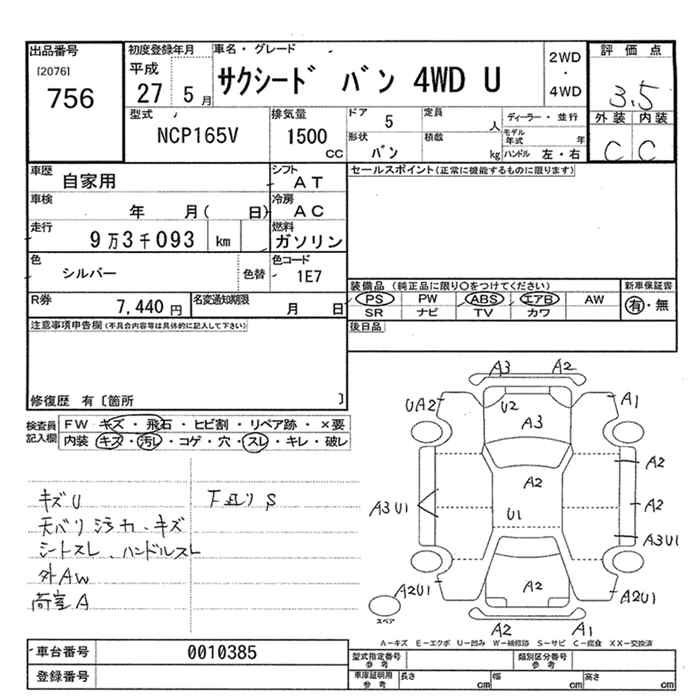 出品番号
[2076]
756
初度登録年月
平成
27 5月
車名・グレード
サクシード バン 4WD U
2WD
・
4WD
評価点
3.5
外装 内装
C C
型式
NCP165V
排気量
1500
CC
ドア
5
定員
人
形状
バン
積載
kg
ディーラー・並行
モデル年式 年
ハンドル 左・右
車歴
自家用
シフト
AT
車検
年 月( 日)
冷房
AC
走行
9万3千093 km
燃料
ガソリン
色
シルバー
色替
色コード
1E7
R券
7,440円
名変通知期限
月 日
セールスポイント(正常に機能するものに限ります)
装備品 (純正品に限り〇をつけてください)
新車保証書
PS PW ABS エアB AW
SR ナビ TV カワ
有・無
後日品
注意事項申告欄(不具合内容等は具体的に記入して下さい)
修復歴 有〔箇所 〕
検査員記入欄
FW キズ・飛石・ヒビ割・リペア跡・×要
内装 キズ・汚レ・コゲ・穴・スレ・キレ・破レ
キズU
天バリ汚れ・キズ
シートスレ、ハンドルスレ
外AW
荷室A
下廻りS
A3 A2
UA2 U2 A3 A1
A2
A2
A2
A3U1 U1
A3U1
A2U1 A2 A2U1
スペア
A2 A1
A-キズ E-エクボ U-凹み W-補修跡 S-サビ C-腐食 XX-交換済
車台番号
0010385
登録番号
型式指定番号
参考
類別区分番号
参考
車庫証明用
参考
長さ cm 幅 cm 高さ cm